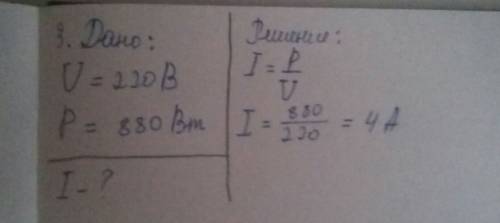 3. Дано:
U = 220 В
P = 880 Вт
I - ?
Решение:
I = P/U
I = 880/220 = 4 А